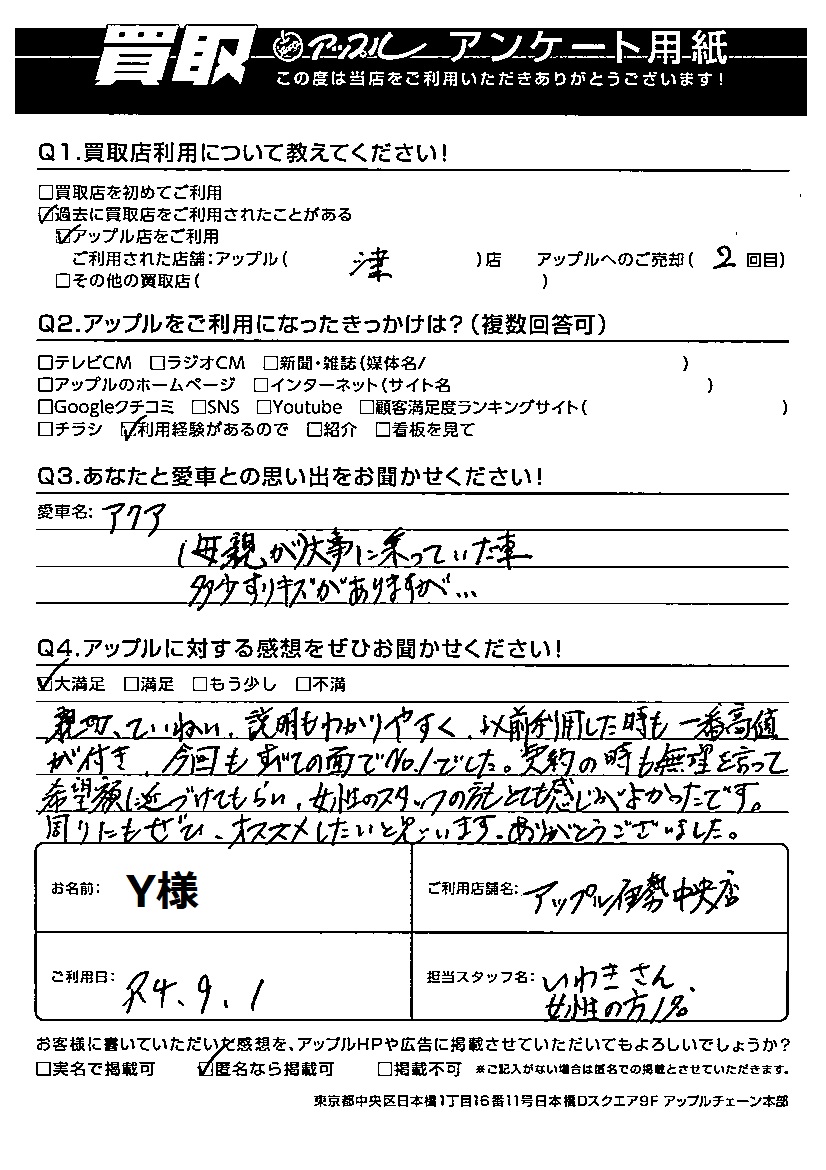 買取 アップル アンケート用紙
この度は当店をご利用いただきありがとうございます!
Q1.買取店利用について教えてください!
□買取店を初めてご利用
☑過去に買取店をご利用されたことがある
☑アップル店をご利用
ご利用された店舗:アップル( 津 )店 アップルへのご売却( 2 回目)
□その他の買取店( )
Q2.アップルをご利用になったきっかけは?(複数回答可)
□テレビCM □ラジオCM □新聞・雑誌(媒体名/ )
□アップルのホームページ □インターネット(サイト名 )
□Googleクチコミ □SNS □Youtube □顧客満足度ランキングサイト( )
□チラシ ☑利用経験があるので □紹介 □看板を見て
Q3.あなたと愛車との思い出をお聞かせください!
愛車名: アクア
母親が大事に乗っていた車
多少すりキズがありますが…
Q4.アップルに対する感想をぜひお聞かせください!
☑大満足 □満足 □もう少し □不満
親切、ていねい、説明もわかりやすく、以前利用した時も一番高値
が付き、今回もすべての面でNo.1でした。契約の時も無理を言って
希望額に近づけてもらい、女性のスタッフの方もとても感じがよかったです。
周りにもぜひ、オススメしたいと思います。ありがとうございました。
お名前: Y様
ご利用店舗名: アップル伊勢中央店
ご利用日: R4.9.1
担当スタッフ名: いわきさん、
女性の方1名
お客様に書いていただいた感想を、アップルHPや広告に掲載させていただいてもよろしいでしょうか?
□実名で掲載可 ☑匿名なら掲載可 □掲載不可 ※ご記入がない場合は匿名での掲載とさせていただきます。
東京都中央区日本橋1丁目16番11号日本橋Dスクエア9F アップルチェーン本部